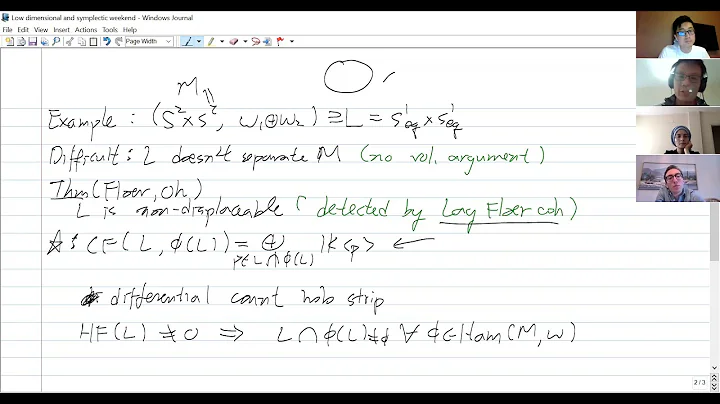 Low dimensional and symplectic weekend - Windows Journal
File Edit View Insert Actions Tools Help
Page Width
M
Example : (S²×S², ω₁⊕ω₂) ⊇ L = S¹eq × S¹eq
Difficult : L doesn't separate M (no vol. argument)
Thm (Floer, Oh)
L is non-displaceable (detected by Lag Floer coh)
☆ : CF(L, φ(L)) = ⊕ |K<p> ←
p∈L∩φ(L)
differential count holo strip
HF(L) ≠ 0 ⇒ L∩φ(L)≠φ ∀ φ∈Ham(M,ω)
2 / 3